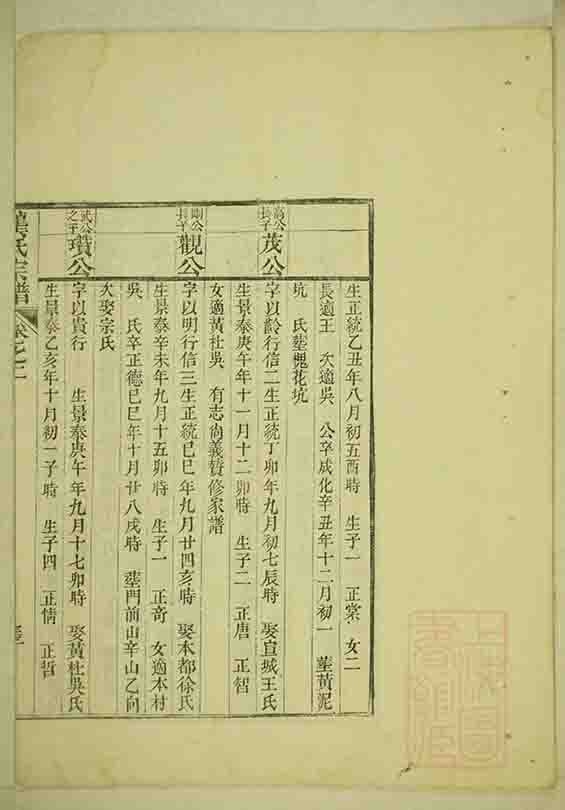 生正統乙丑年八月初五酉時 生子一 正棠 女二
長適王 次適吳 公卒成化辛丑年十二月初一 塟黃泥
坑 氏塟槐花坑
公長子茂公
字以齡行信二生正統丁卯年九月初七辰時 娶宣城王氏
生景泰庚午年十一月十二卯時 生子二 正唐 正智
女適黃杜吳 有志尚義贊修家譜
剛公長子觀公
字以明行信三生正統己巳年九月廿四亥時 娶本都徐氏
生景泰辛未年九月十五卯時 生子一 正奇 女適本村
吳 氏卒正德己巳年十月廿八戌時 塟門前山辛山乙向
次娶宗氏
武公之子瓚公
字以貴行 生景泰庚午年九月十七卯時 娶黃杜吳氏
生景泰乙亥年十月初一子時 生子四 正情 正哲
氏宗譜 卷之二
上海圖書館藏